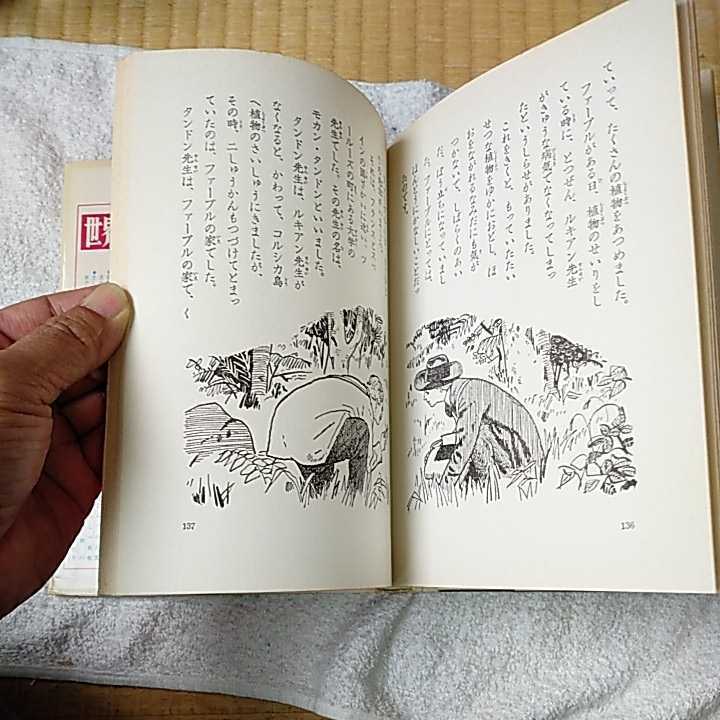 ていって、たくさんの植物をあつめました。
ファーブルがある日、植物のせいりをし
ている時に、とつぜん、ルキアン先生
がきゅうな病気でなくなってしまっ
たというしらせがありました。
これをきくと、もっていたたい
せつな植物をゆかにおとし、ほ
おをながれるなみだにも気が
つかないで、しばらくのあい
だ、ぼうっとなっていまし
た。ファーブルにとっては、
それは
たのです。
ールーズの町にある大学の
先生でした。その先生の名は、
モカン・タンドンといいました。
タンドン先生は、ルキアン先生が
なくなると、かわって、コルシカ島
へ植物のさいしゅうにきましたが、
その時、二しゅうかんもつづけてとまっ
ていたのは、ファーブルの家でした。
タンドン先生は、ファーブルの家で、く
136
137
世界